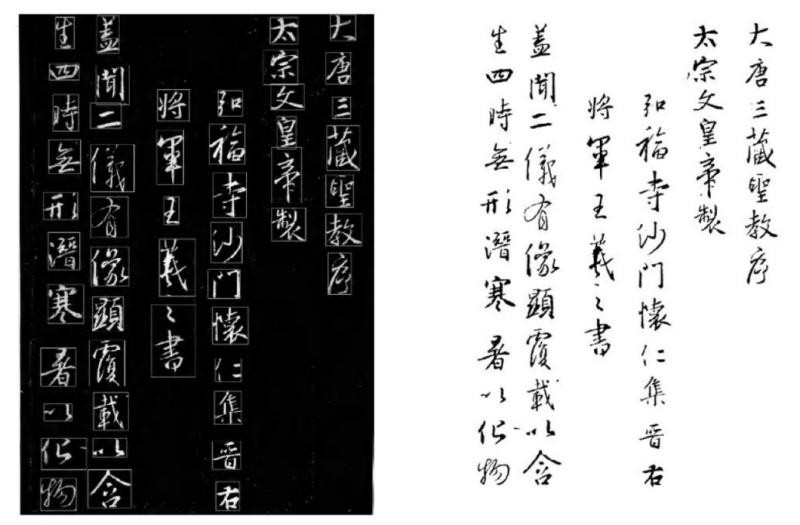 大唐三藏聖教序
太宗文皇帝製
弘福寺沙門懷仁集晉右
將軍王羲之書
蓋聞二儀有像顯覆載以含
生四時無形潛寒暑以化物
大唐三藏聖教序
太宗文皇帝製
弘福寺沙門懷仁集晉右
將軍王羲之書
蓋聞二儀有像顯覆載以含
生四時無形潛寒暑以化物